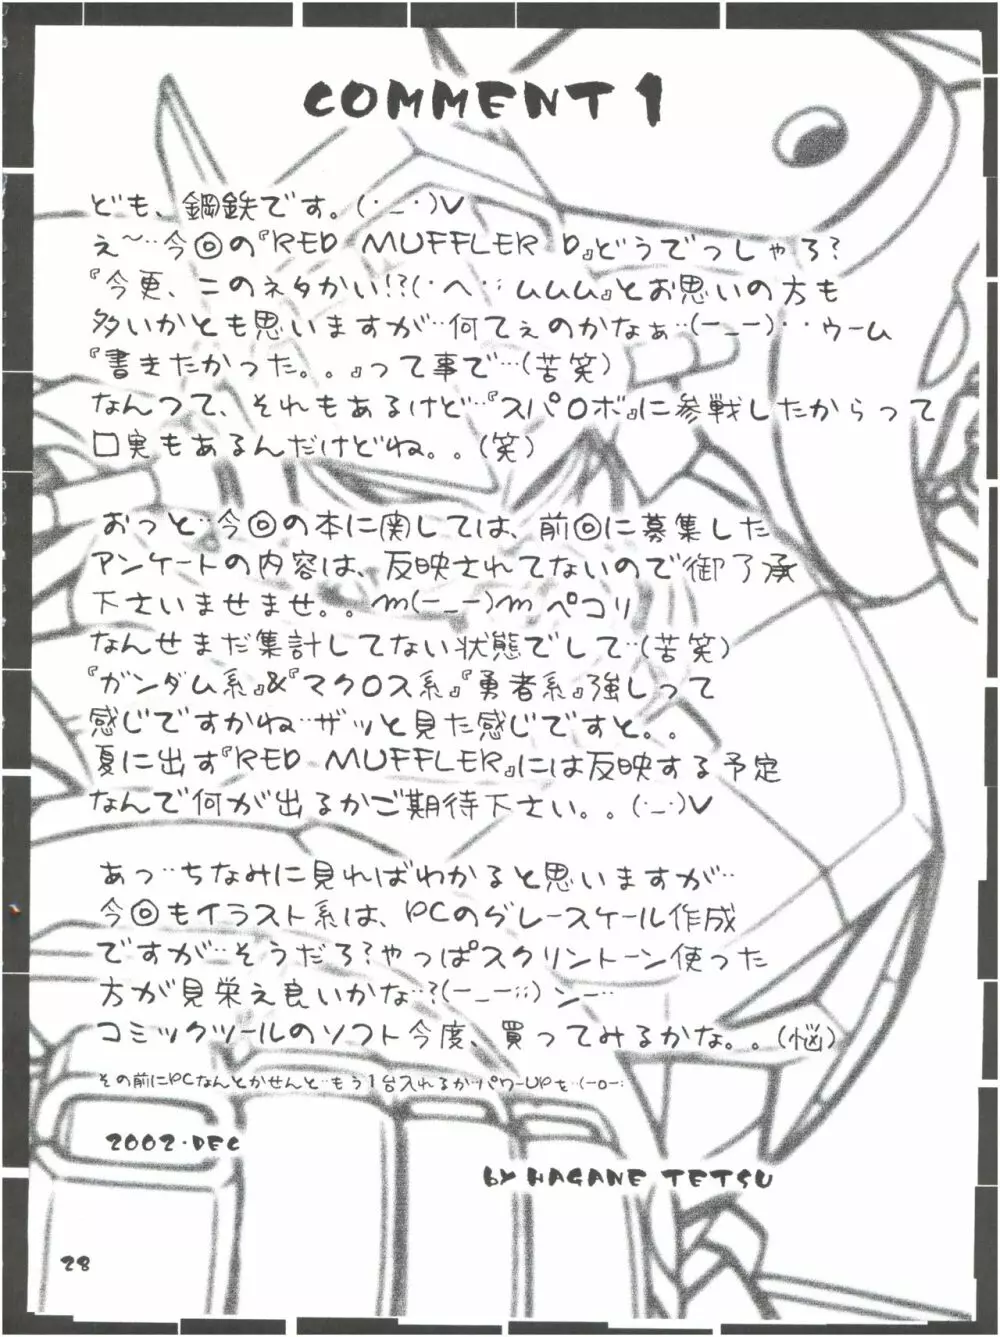 COMMENT 1
ども、鋼鉄です。(・_・)V
え〜‥今回の『RED MUFFLER D』どうでっしゃろ?
『今更、このネタかい!?(・へ・; ムムム』とお思いの方も
多いかとも思いますが‥何てぇのかなぁ‥(ー_ー)‥ゥーム
『書きたかった。。』って事で‥(苦笑)
なんつて、それもあるけど‥『スパロボ』に参戦したからって
口実もあるんだけどね。。(笑)
おっと‥今回の本に関しては、前回に募集した
アンケートの内容は、反映されてないので御了承
下さいませませ。。m(ー_ー)m ペコリ
なんせまだ集計してない状態でして‥(苦笑)
『ガンダム系』&『マクロス系』『勇者系』強しって
感じですかね‥ザッと見た感じですと。。
夏に出す『RED MUFFLER』には反映する予定
なんで何が出るかご期待下さい。。(・_・)V
あっ‥ちなみに見ればわかると思いますが‥
今回もイラスト系は、PCのグレースケール作成
ですが‥そうだろ?やっぱスクリントーン使った
方が見栄え良いかな‥?(ー_ー;;)ンー‥
コミックツールのソフト今度、買ってみるかな。。(悩)
その前にPCなんとかせんと‥もう1台入れるか‥パワーUPを‥(ーoー;
2002・DEC
by HAGANE TETSU
28